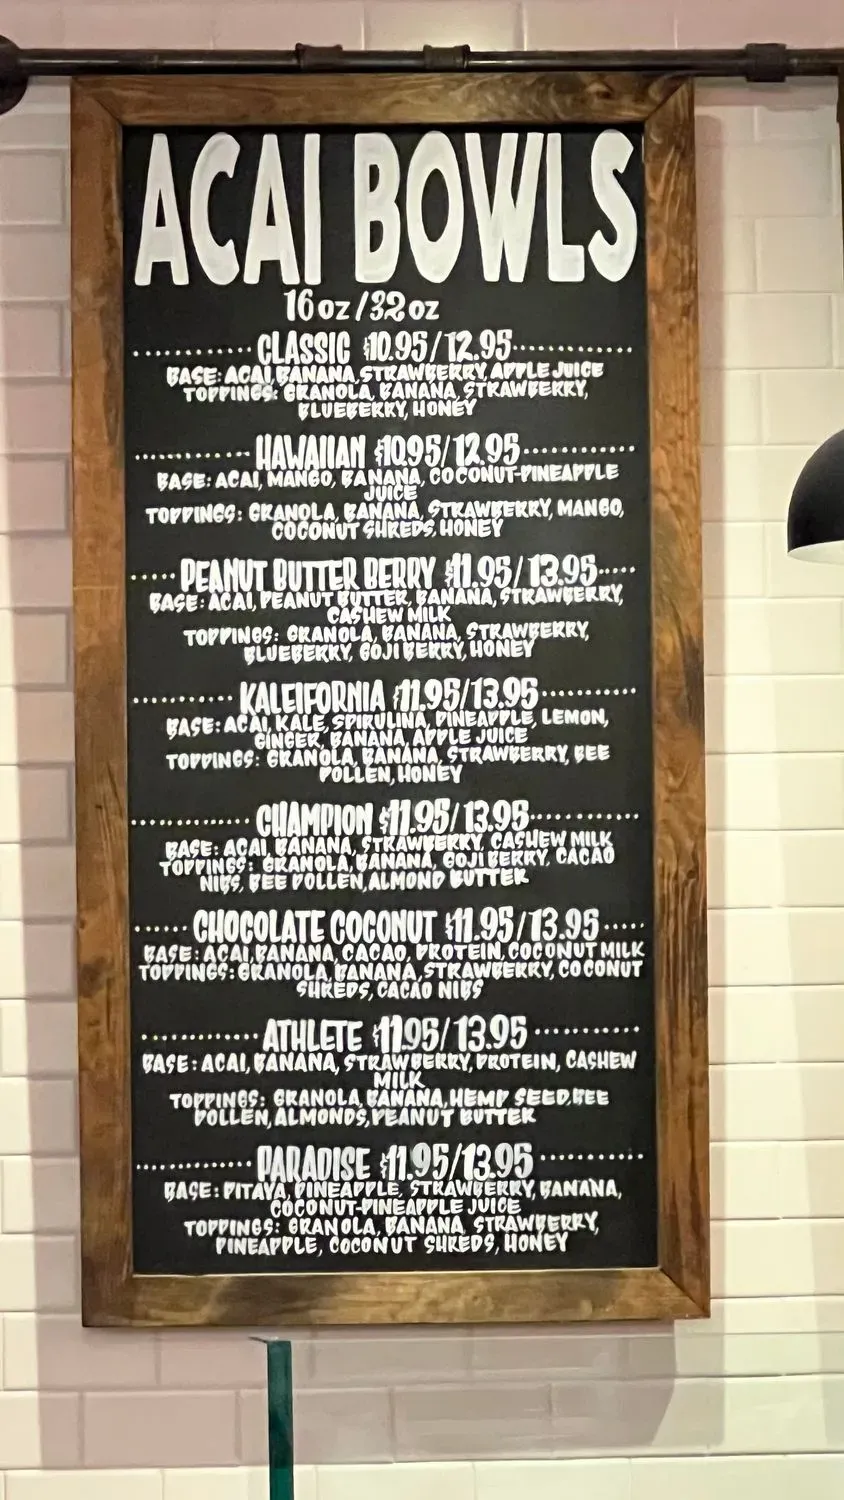 ACAI BOWLS
16 oz / 32 oz
CLASSIC $10.95/12.95
BASE: ACAI, BANANA, STRAWBERRY, APPLE JUICE
TOPPINGS: GRANOLA, BANANA, STRAWBERRY,
BLUEBERRY, HONEY
HAWAIIAN $10.95/12.95
BASE: ACAI, MANGO, BANANA, COCONUT-PINEAPPLE
JUICE
TOPPINGS: GRANOLA, BANANA, STRAWBERRY, MANGO,
COCONUT SHREDS, HONEY
PEANUT BUTTER BERRY $11.95/13.95
BASE: ACAI, PEANUT BUTTER, BANANA, STRAWBERRY,
CASHEW MILK
TOPPINGS: GRANOLA, BANANA, STRAWBERRY,
BLUEBERRY, GOJI BERRY, HONEY
KALEIFORNIA $11.95/13.95
BASE: ACAI, KALE, SPIRULINA, PINEAPPLE, LEMON,
GINGER, BANANA, APPLE JUICE
TOPPINGS: GRANOLA, BANANA, STRAWBERRY, BEE
POLLEN, HONEY
CHAMPION $11.95/13.95
BASE: ACAI, BANANA, STRAWBERRY, CASHEW MILK
TOPPINGS: GRANOLA, BANANA, GOJI BERRY, CACAO
NIBS, BEE POLLEN, ALMOND BUTTER
CHOCOLATE COCONUT $11.95/13.95
BASE: ACAI, BANANA, CACAO, PROTEIN, COCONUT MILK
TOPPINGS: GRANOLA, BANANA, STRAWBERRY, COCONUT
SHREDS, CACAO NIBS
ATHLETE $11.95/13.95
BASE: ACAI, BANANA, STRAWBERRY, PROTEIN, CASHEW
MILK
TOPPINGS: GRANOLA, BANANA, HEMP SEED, BEE
POLLEN, ALMONDS, PEANUT BUTTER
PARADISE $11.95/13.95
BASE: PITAYA, PINEAPPLE, STRAWBERRY, BANANA,
COCONUT-PINEAPPLE JUICE
TOPPINGS: GRANOLA, BANANA, STRAWBERRY,
PINEAPPLE, COCONUT SHREDS, HONEY